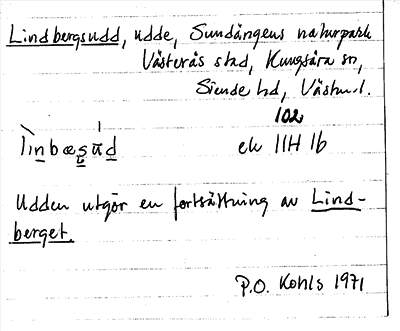 Lindbergsudd, udde, Sundängens naturpark
Västerås stad, Kungsåra sn,
Siende hd, Västm.l.
102
ek 11H 1b
Udden utgör en fortsättning av Lind-
berget.
P.O. Kohls 1971